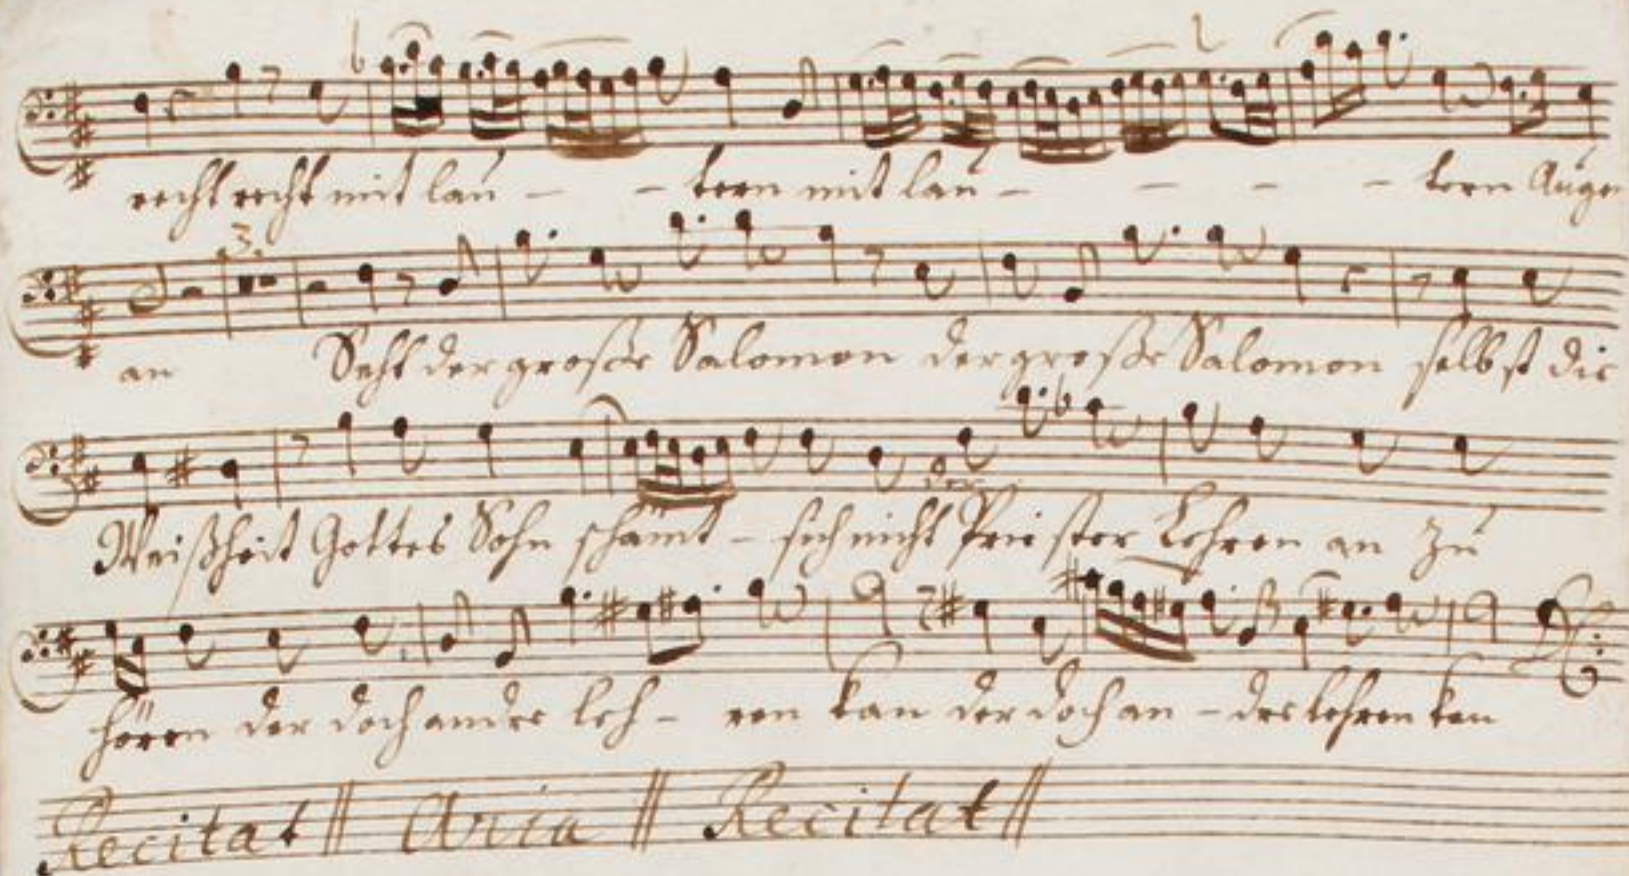 recht recht mit lau - - tern mit lau - - - - tern Augen
3.
an Seht der große Salomon der große Salomon selbst die
Weißheit Gottes Sohn schämt - sich nicht Priester Lehren an zu
hören der doch andre leh - ren kan der doch an - dre lehren kan
Recitat || Aria || Recitat ||